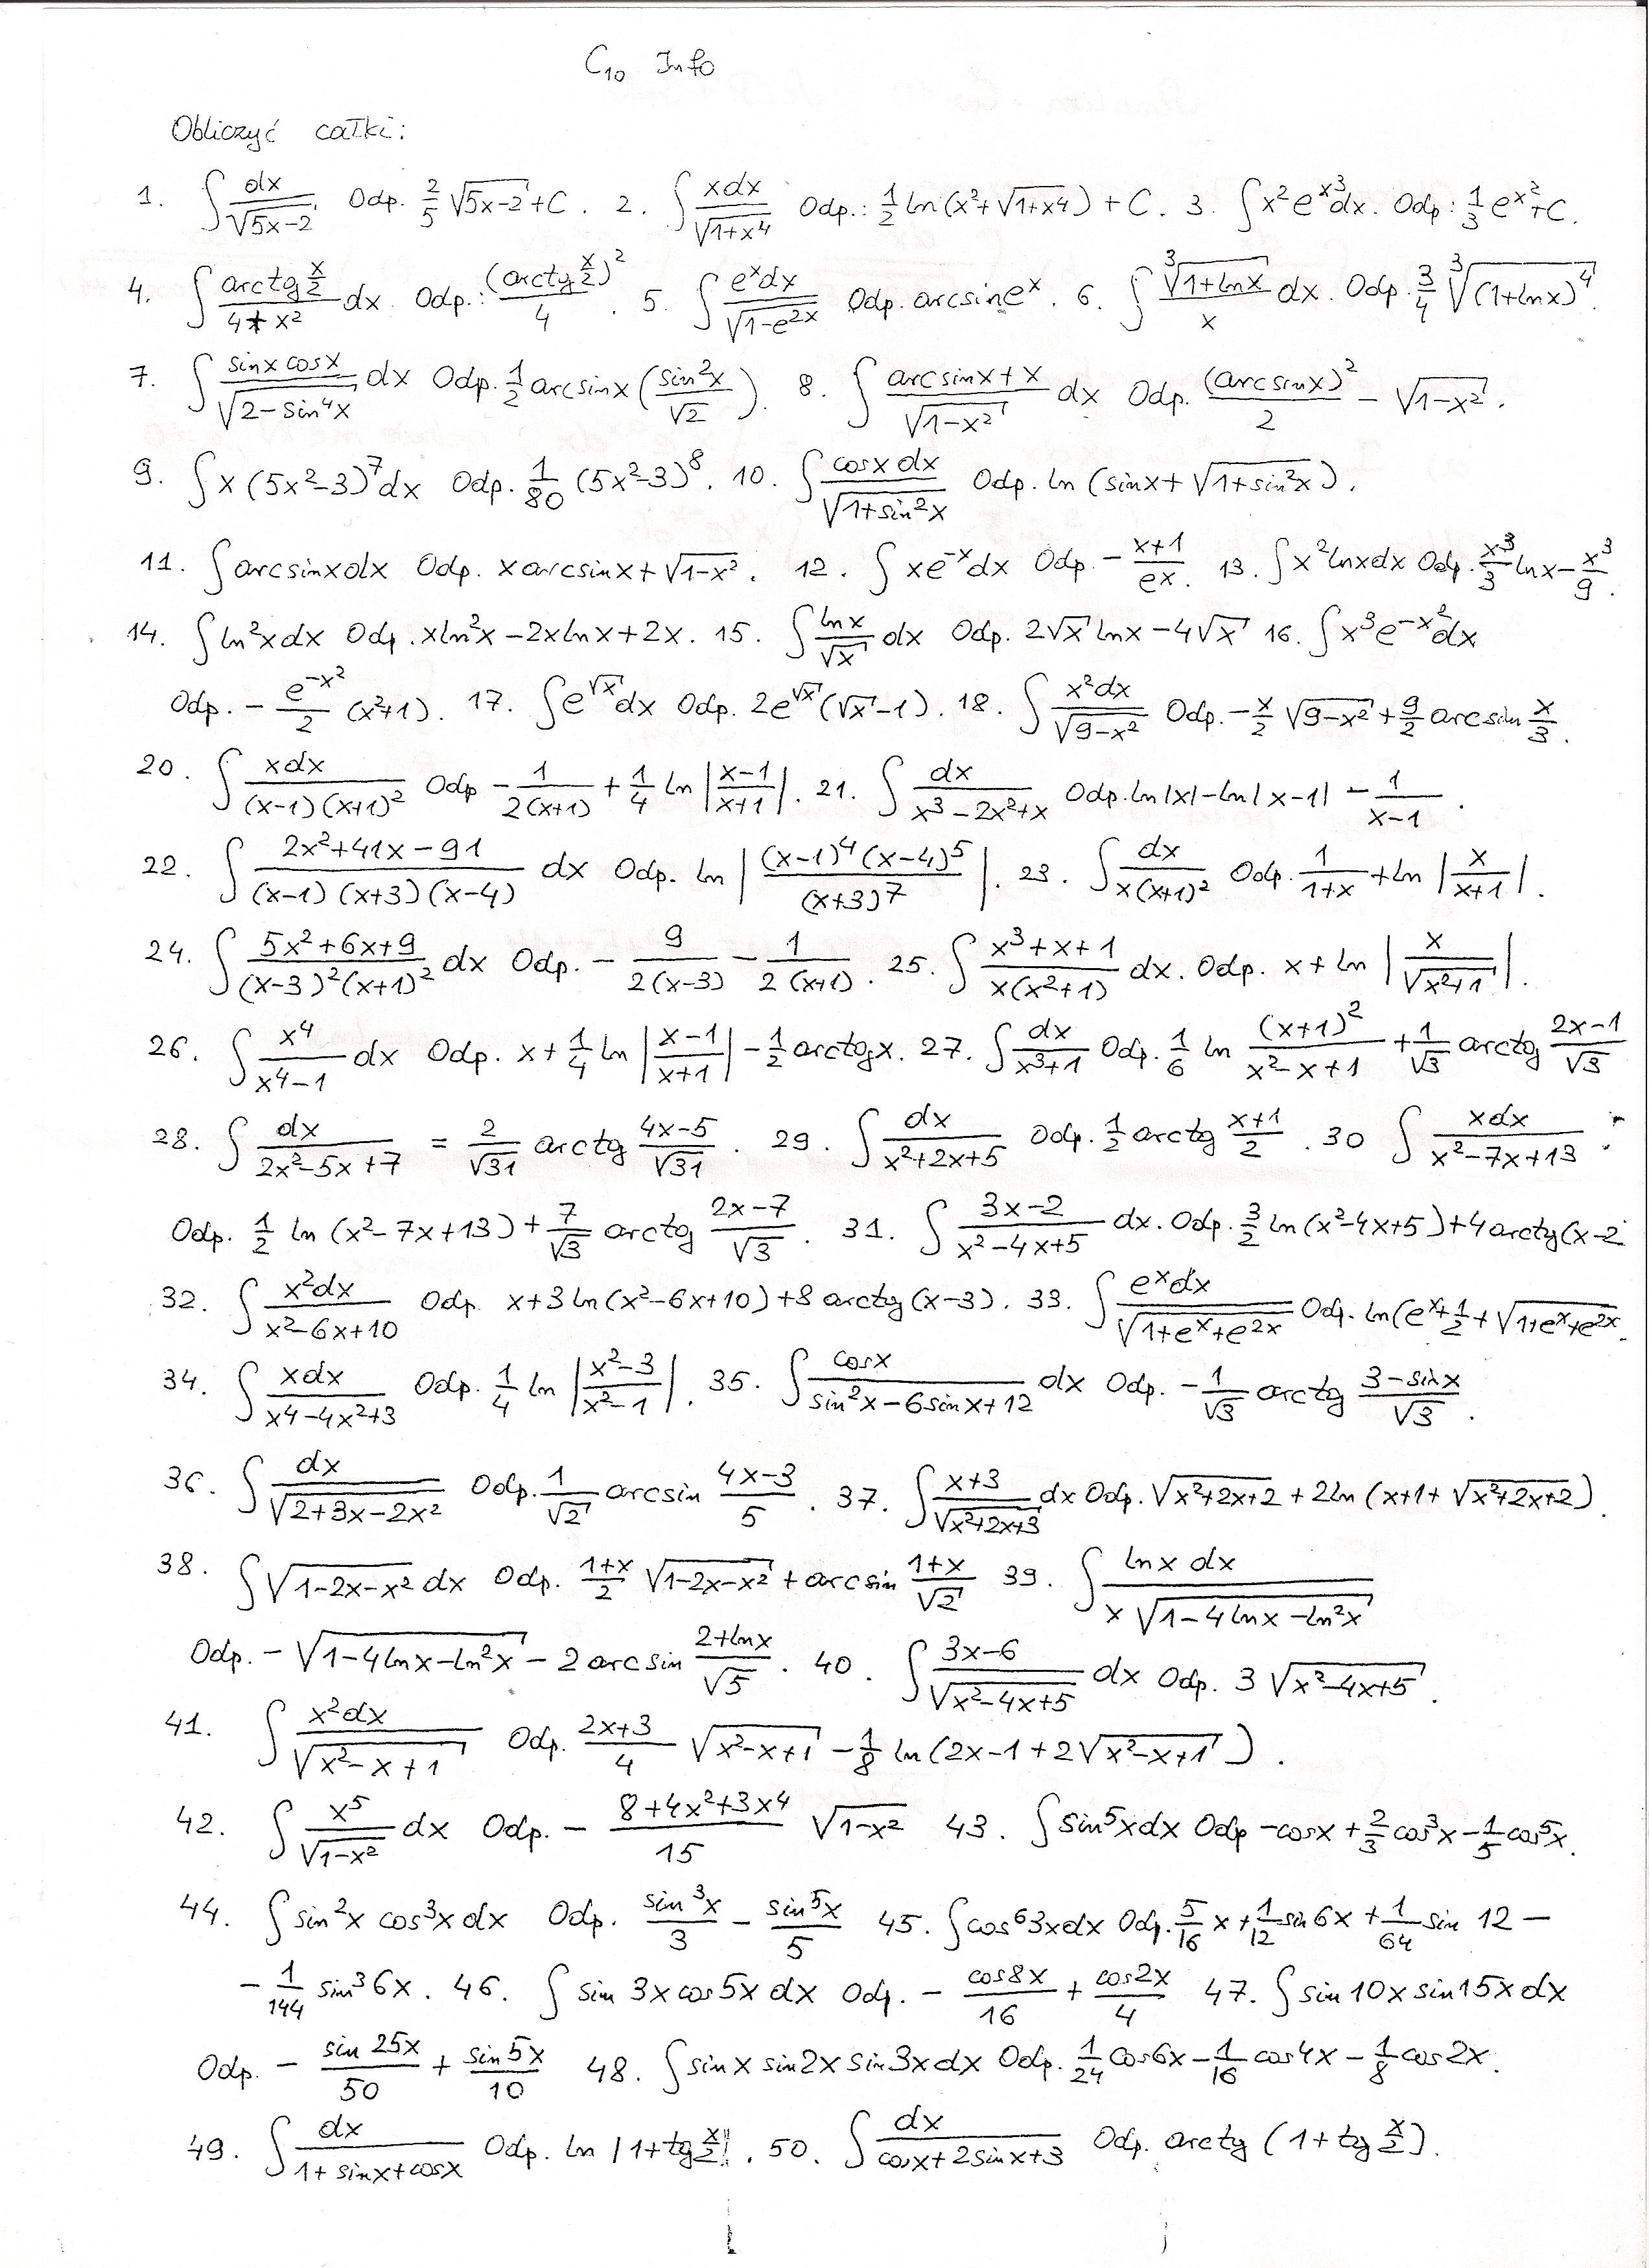 C₁₀ Info
Obliczyć całki:
1. ∫ dx/√(5x-2) Odp. 2/5 √(5x-2) + C. 2. ∫ xdx/√(1+x⁴) Odp.: 1/2 ln(x²+√(1+x⁴)) + C. 3. ∫ x²e^(x³)dx. Odp: 1/3 e^(x²) + C.
4. ∫ (arctg x/2)/(4+x²) dx. Odp.: (arctg x/2)²/4. 5. ∫ eˣdx/√(1-e^(2x)) Odp. arcsin eˣ. 6. ∫ ∛(1+lnx)/x dx. Odp. 3/4 ∛((1+lnx)⁴).
7. ∫ sinx cosx/√(2-sin⁴x) dx Odp. 1/2 arcsinx (sin²x/√2). 8. ∫ (arcsinx+x)/√(1-x²) dx Odp. (arcsinx)²/2 - √(1-x²).
9. ∫ x(5x²-3)⁷dx Odp. 1/80 (5x²-3)⁸. 10. ∫ cosx dx/√(1+sin²x) Odp. ln (sinx+√(1+sin²x)).
11. ∫ arcsinxdx Odp. x arcsinx+√(1-x²). 12. ∫ xe^(-x)dx Odp. -(x+1)/eˣ. 13. ∫ x²lnxdx Odp. x³/3 lnx - x³/9.
14. ∫ ln²xdx Odp. xln²x-2xlnx+2x. 15. ∫ lnx/√x dx Odp. 2√x lnx-4√x 16. ∫ x³e^(-x²)dx
Odp. - e^(-x²)/2 (x²+1). 17. ∫ e^(√x)dx Odp. 2e^(√x)(√x-1). 18. ∫ x²dx/√(9-x²) Odp. -x/2 √(9-x²) + 9/2 arcsin x/3.
20. ∫ xdx/((x-1)(x+1)²) Odp - 1/(2(x+1)) + 1/4 ln |(x-1)/(x+1)|. 21. ∫ dx/(x³-2x²+x) Odp. ln|x|-ln|x-1| - 1/(x-1).
22. ∫ (2x²+41x-91)/((x-1)(x+3)(x-4)) dx Odp. ln |(x-1)⁴(x-4)⁵/(x+3)⁷|. 23. ∫ dx/(x(x+1)²) Odp. 1/(1+x) + ln |x/(x+1)|.
24. ∫ (5x²+6x+9)/((x-3)²(x+1)²) dx Odp. - 9/(2(x-3)) - 1/(2(x+1)). 25. ∫ (x³+x+1)/(x(x²+1)) dx. Odp. x + ln |x/√(x²+1)|.
26. ∫ x⁴/(x⁴-1) dx Odp. x + 1/4 ln |(x-1)/(x+1)| - 1/2 arctgx. 27. ∫ dx/(x³+1) Odp. 1/6 ln (x+1)²/(x²-x+1) + 1/√3 arctg (2x-1)/√3
28. ∫ dx/(2x²-5x+7) = 2/√31 arctg (4x-5)/√31. 29. ∫ dx/(x²+2x+5) Odp. 1/2 arctg (x+1)/2. 30 ∫ xdx/(x²-7x+13).
Odp. 1/2 ln (x²-7x+13) + 7/√3 arctg (2x-7)/√3. 31. ∫ (3x-2)/(x²-4x+5) dx. Odp. 3/2 ln(x²-4x+5)+4arctg(x-2
32. ∫ x²dx/(x²-6x+10) Odp. x+3ln(x²-6x+10)+8 arctg(x-3). 33. ∫ eˣdx/√(1+eˣ+e^(2x)) Odp. ln(eˣ+1/2+√(1+eˣ+e^(2x)).
34. ∫ xdx/(x⁴-4x²+3) Odp. 1/4 ln |(x²-3)/(x²-1)|. 35. ∫ cosx/(sin²x-6sinx+12) dx Odp. -1/√3 arctg (3-sinx)/√3.
36. ∫ dx/√(2+3x-2x²) Odp. 1/√2 arcsin (4x-3)/5. 37. ∫ (x+3)/√(x²+2x+3) dx Odp. √(x²+2x+2) + 2ln (x+1+√(x²+2x+2)).
38. ∫ √(1-2x-x²) dx Odp. (1+x)/2 √(1-2x-x²) + arcsin (1+x)/√2 39. ∫ lnx dx/(x√(1-4lnx-ln²x))
Odp. -√(1-4lnx-ln²x) - 2arcsin (2+lnx)/√5. 40. ∫ (3x-6)/√(x²-4x+5) dx Odp. 3√(x²-4x+5).
41. ∫ x²dx/√(x²-x+1) Odp. (2x+3)/4 √(x²-x+1) - 1/8 ln(2x-1+2√(x²-x+1)).
42. ∫ x⁵/√(1-x²) dx Odp. - (8+4x²+3x⁴)/15 √(1-x²) 43. ∫ sin⁵xdx Odp -cosx + 2/3 cos³x - 1/5 cos⁵x.
44. ∫ sin²x cos³x dx Odp. sin³x/3 - sin⁵x/5 45. ∫ cos⁶3xdx Odp. 5/16 x + 1/12 sin6x + 1/64 sin 12 -
- 1/144 sin³6x. 46. ∫ sin 3x cos5x dx Odp. - cos8x/16 + cos2x/4 47. ∫ sin10x sin15x dx
Odp. - sin 25x/50 + sin5x/10 48. ∫ sinx sin2x sin3x dx Odp. 1/24 cos6x - 1/16 cos4x - 1/8 cos2x.
49. ∫ dx/(1+sinx+cosx) Odp. ln |1+tg x/2|. 50. ∫ dx/(cosx+2sinx+3) Odp. arctg (1+tg x/2).